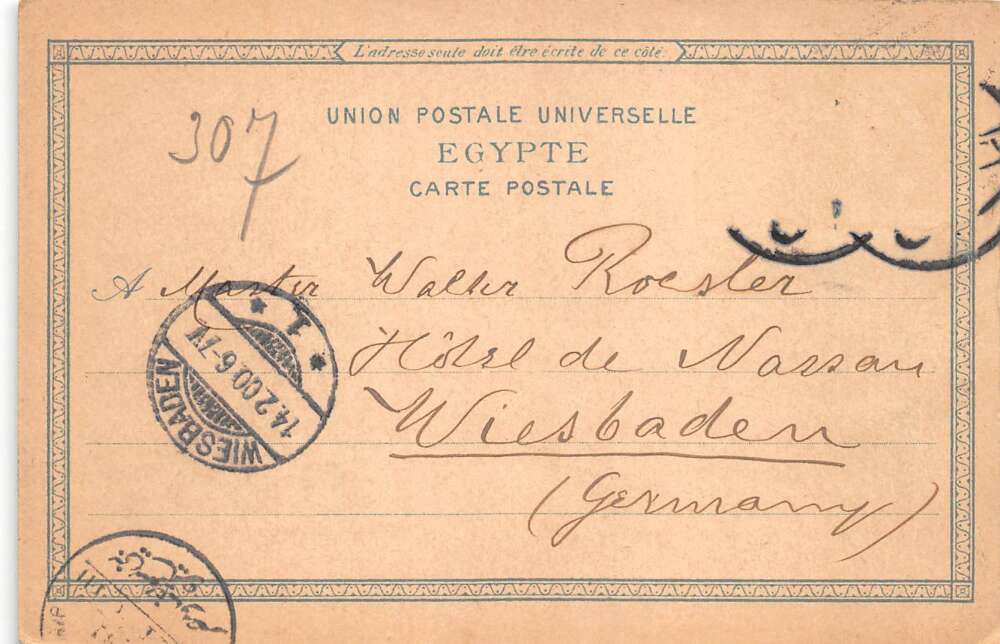 L'adresse seule doit être écrite de ce côté
UNION POSTALE UNIVERSELLE
EGYPTE
CARTE POSTALE
307
A Master Walter Roesler
Hôtel de Nassau
Wiesbaden
(Germany)
WIESBADEN
14.2.00.6-7V.
* 1 *